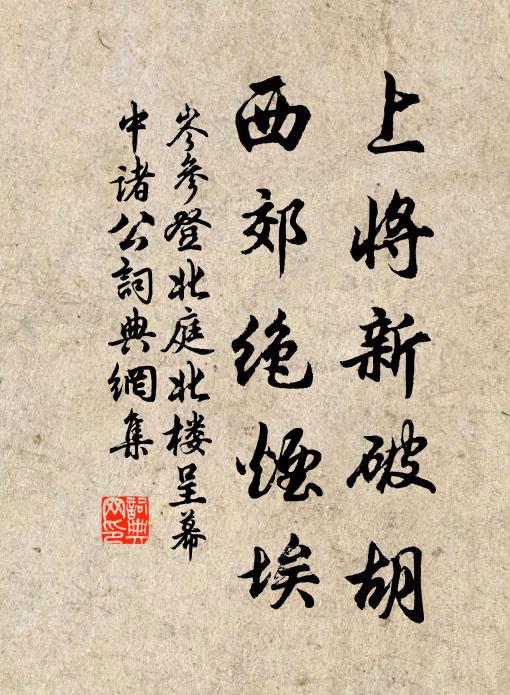 上将新破胡
西郊绝煙埃
岑参登北庭北楼呈幕
中诸公詞典網集
詞典
网印